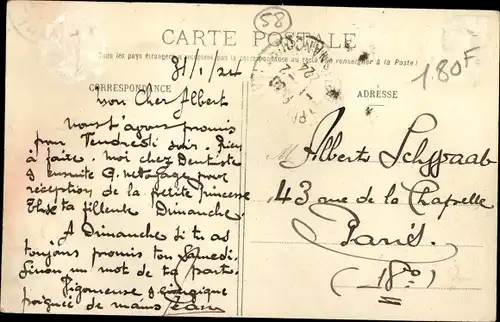 58
CARTE POSTALE
Tous les pays étrangers n'acceptent pas la correspondance au recto (Se renseigner à la Poste)
31/1/24
1.80F
CORRESPONDANCE
ADRESSE
mon Cher Albert
Nous t'avons promis
pour Vendredi soir. Rien
à faire. moi chez Dentiste
& ensuite G. nettoyage pour
réception de la petite Princesse
ta filleule Dimanche.
A Dimanche si tu as
toujours promis ton Samedi.
Sinon un mot de ta part.
Vigoureuse & énergique
poignée de mains Jean
M Albert Schwaab
43 rue de la Chapelle
Paris.
(18e)